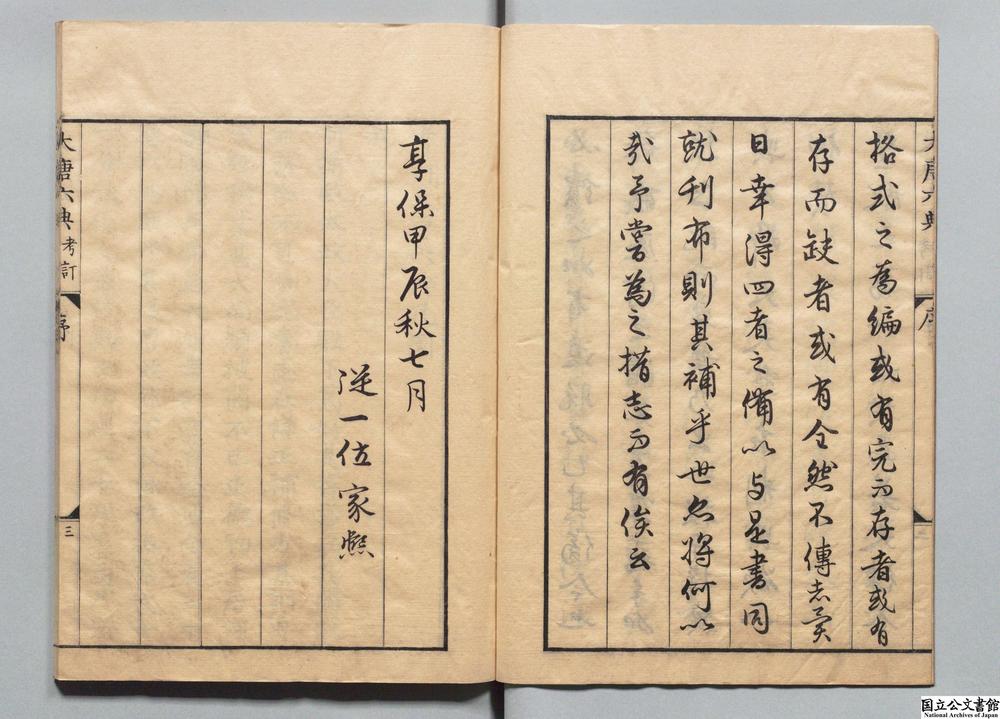 大唐六典
序
格式之為編或有完而存者或有
存而缺者或有全然不傳者矣
日幸得四者之備以与是書同
就刊布則其補乎世也將何以
哉予嘗為之措志而有俟云
享保甲辰秋七月
從一位家熙
大唐六典考訂
序
三
国立公文書館
National Archives of Japan